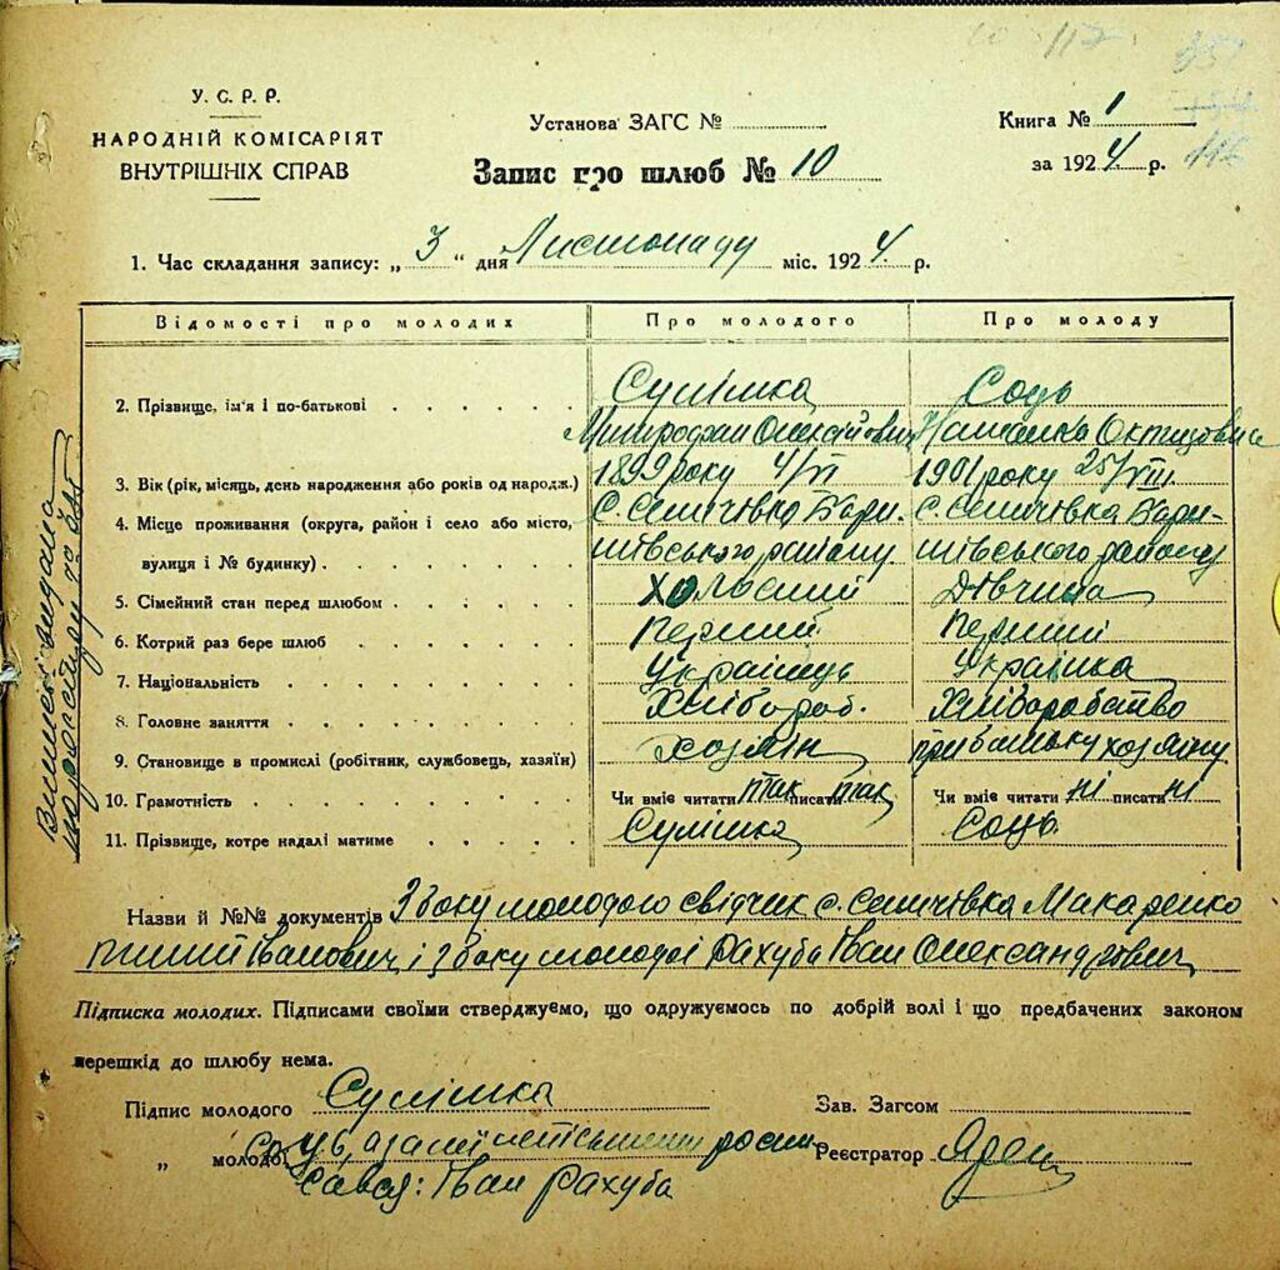 У. С. Р. Р.
НАРОДНІЙ КОМІСАРІЯТ
ВНУТРІШНІХ СПРАВ
Установа ЗАГС №
Книга № 1
за 1924 р.
Запис про шлюб № 10
1. Час складання запису: „ 3 “ дня Листопаду міс. 1924. р.
Відомості про молодих Про молодого Про молоду
2. Прізвище, ім'я і по-батькові Сулімка Соць
Митрофан Олексійович
3. Вік (рік, місяць, день народження або років од народж.) 1899 року 4/VI 1901 року 25/VIII
4. Місце проживання (округа, район і село або місто, С. Селичівка Бари- С. Селичівка Бари-
вулиця і № будинку) шівського району. шівського району
5. Сімейний стан перед шлюбом холостий Дівчина
6. Котрий раз бере шлюб перший перший
7. Національність Українець Українка
8. Головне заняття Хлібороб. Хліборобство
9. Становище в промислі (робітник, службовець, хазяїн) хозяін при батьку хозяіну
10. Грамотність Чи вміє читати так писати так Чи вміє читати ні писати ні
11. Прізвище, котре надалі матиме Сулімка Соць.
Назви й №№ документів З боку молодого свідчик с. Селичівка Макаренко
Пилип Іванович і з боку молодоі Рахуба Іван Олександрович
Підписка молодих. Підписами своїми стверджуємо, що одружуємось по добрій волі і що предбачених законом
перешкід до шлюбу нема.
Підпис молодого Сулімка
Зав. Загсом
„ молодої Соць, а за неї роспи-
Реєстратор
сався: Іван Рахуба